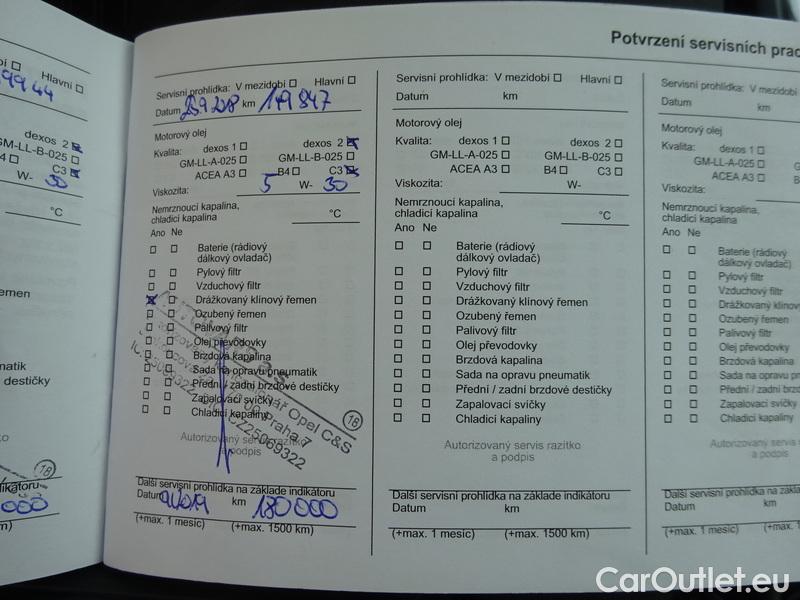 Potvrzení servisních prac
Hlavní
99944
dexos 2
GM-LL-B-025
B4 C3
W- 30
°C
řemen
matik
destičky
18
indikátoru
000
Servisní prohlídka: V mezidobí Hlavní
Datum 25.9.2018 km 149 847
Motorový olej
Kvalita: dexos 1 dexos 2
GM-LL-A-025 GM-LL-B-025
ACEA A3 B4 C3
Viskozita: 5 W- 30
Nemrznoucí kapalina,
chladicí kapalina °C
Ano Ne
Baterie (rádiový
dálkový ovladač)
Pylový filtr
Vzduchový filtr
Drážkovaný klínový řemen
Ozubený řemen
Palivový filtr
Olej převodovky
Brzdová kapalina
Sada na opravu pneumatik
Přední / zadní brzdové destičky
Zapalovací svíčky
Chladicí kapaliny
Opel C&S
Praha 7
CZ25069322
18
Autorizovaný servis razítko
a podpis
Další servisní prohlídka na základe indikátoru
Datum 9/2019 km 180 000
(+max. 1 mesíc) (+max. 1500 km)
Servisní prohlídka: V mezidobí Hlavní
Datum km
Motorový olej
Kvalita: dexos 1 dexos 2
GM-LL-A-025 GM-LL-B-025
ACEA A3 B4 C3
Viskozita: W-
Nemrznoucí kapalina,
chladicí kapalina °C
Ano Ne
Baterie (rádiový
dálkový ovladač)
Pylový filtr
Vzduchový filtr
Drážkovaný klínový řemen
Ozubený řemen
Palivový filtr
Olej převodovky
Brzdová kapalina
Sada na opravu pneumatik
Přední / zadní brzdové destičky
Zapalovací svíčky
Chladicí kapaliny
Autorizovaný servis razítko
a podpis
Další servisní prohlídka na základe indikátoru
Datum km
(+max. 1 mesíc) (+max. 1500 km)
Servisní prohlídka: V mezidobí
Datum km
Motorový olej
Kvalita: dexos 1
GM-LL-A-025 GM
ACEA A3 B4
Viskozita:
Nemrznoucí kapalina,
chladicí kapalina
Ano Ne
Baterie (rádiový
dálkový ovladač)
Pylový filtr
Vzduchový filtr
Drážkovaný klínový
Ozubený řemen
Palivový filtr
Olej převodovky
Brzdová kapalina
Sada na opravu pn
Přední / zadní brzd
Zapalovací svíčky
Chladicí kapaliny
Autorizovaný servis ra
a podpis
Další servisní prohlídka na základe
Datum km
(+max. 1 mesíc) (+max.
CarOutlet.eu